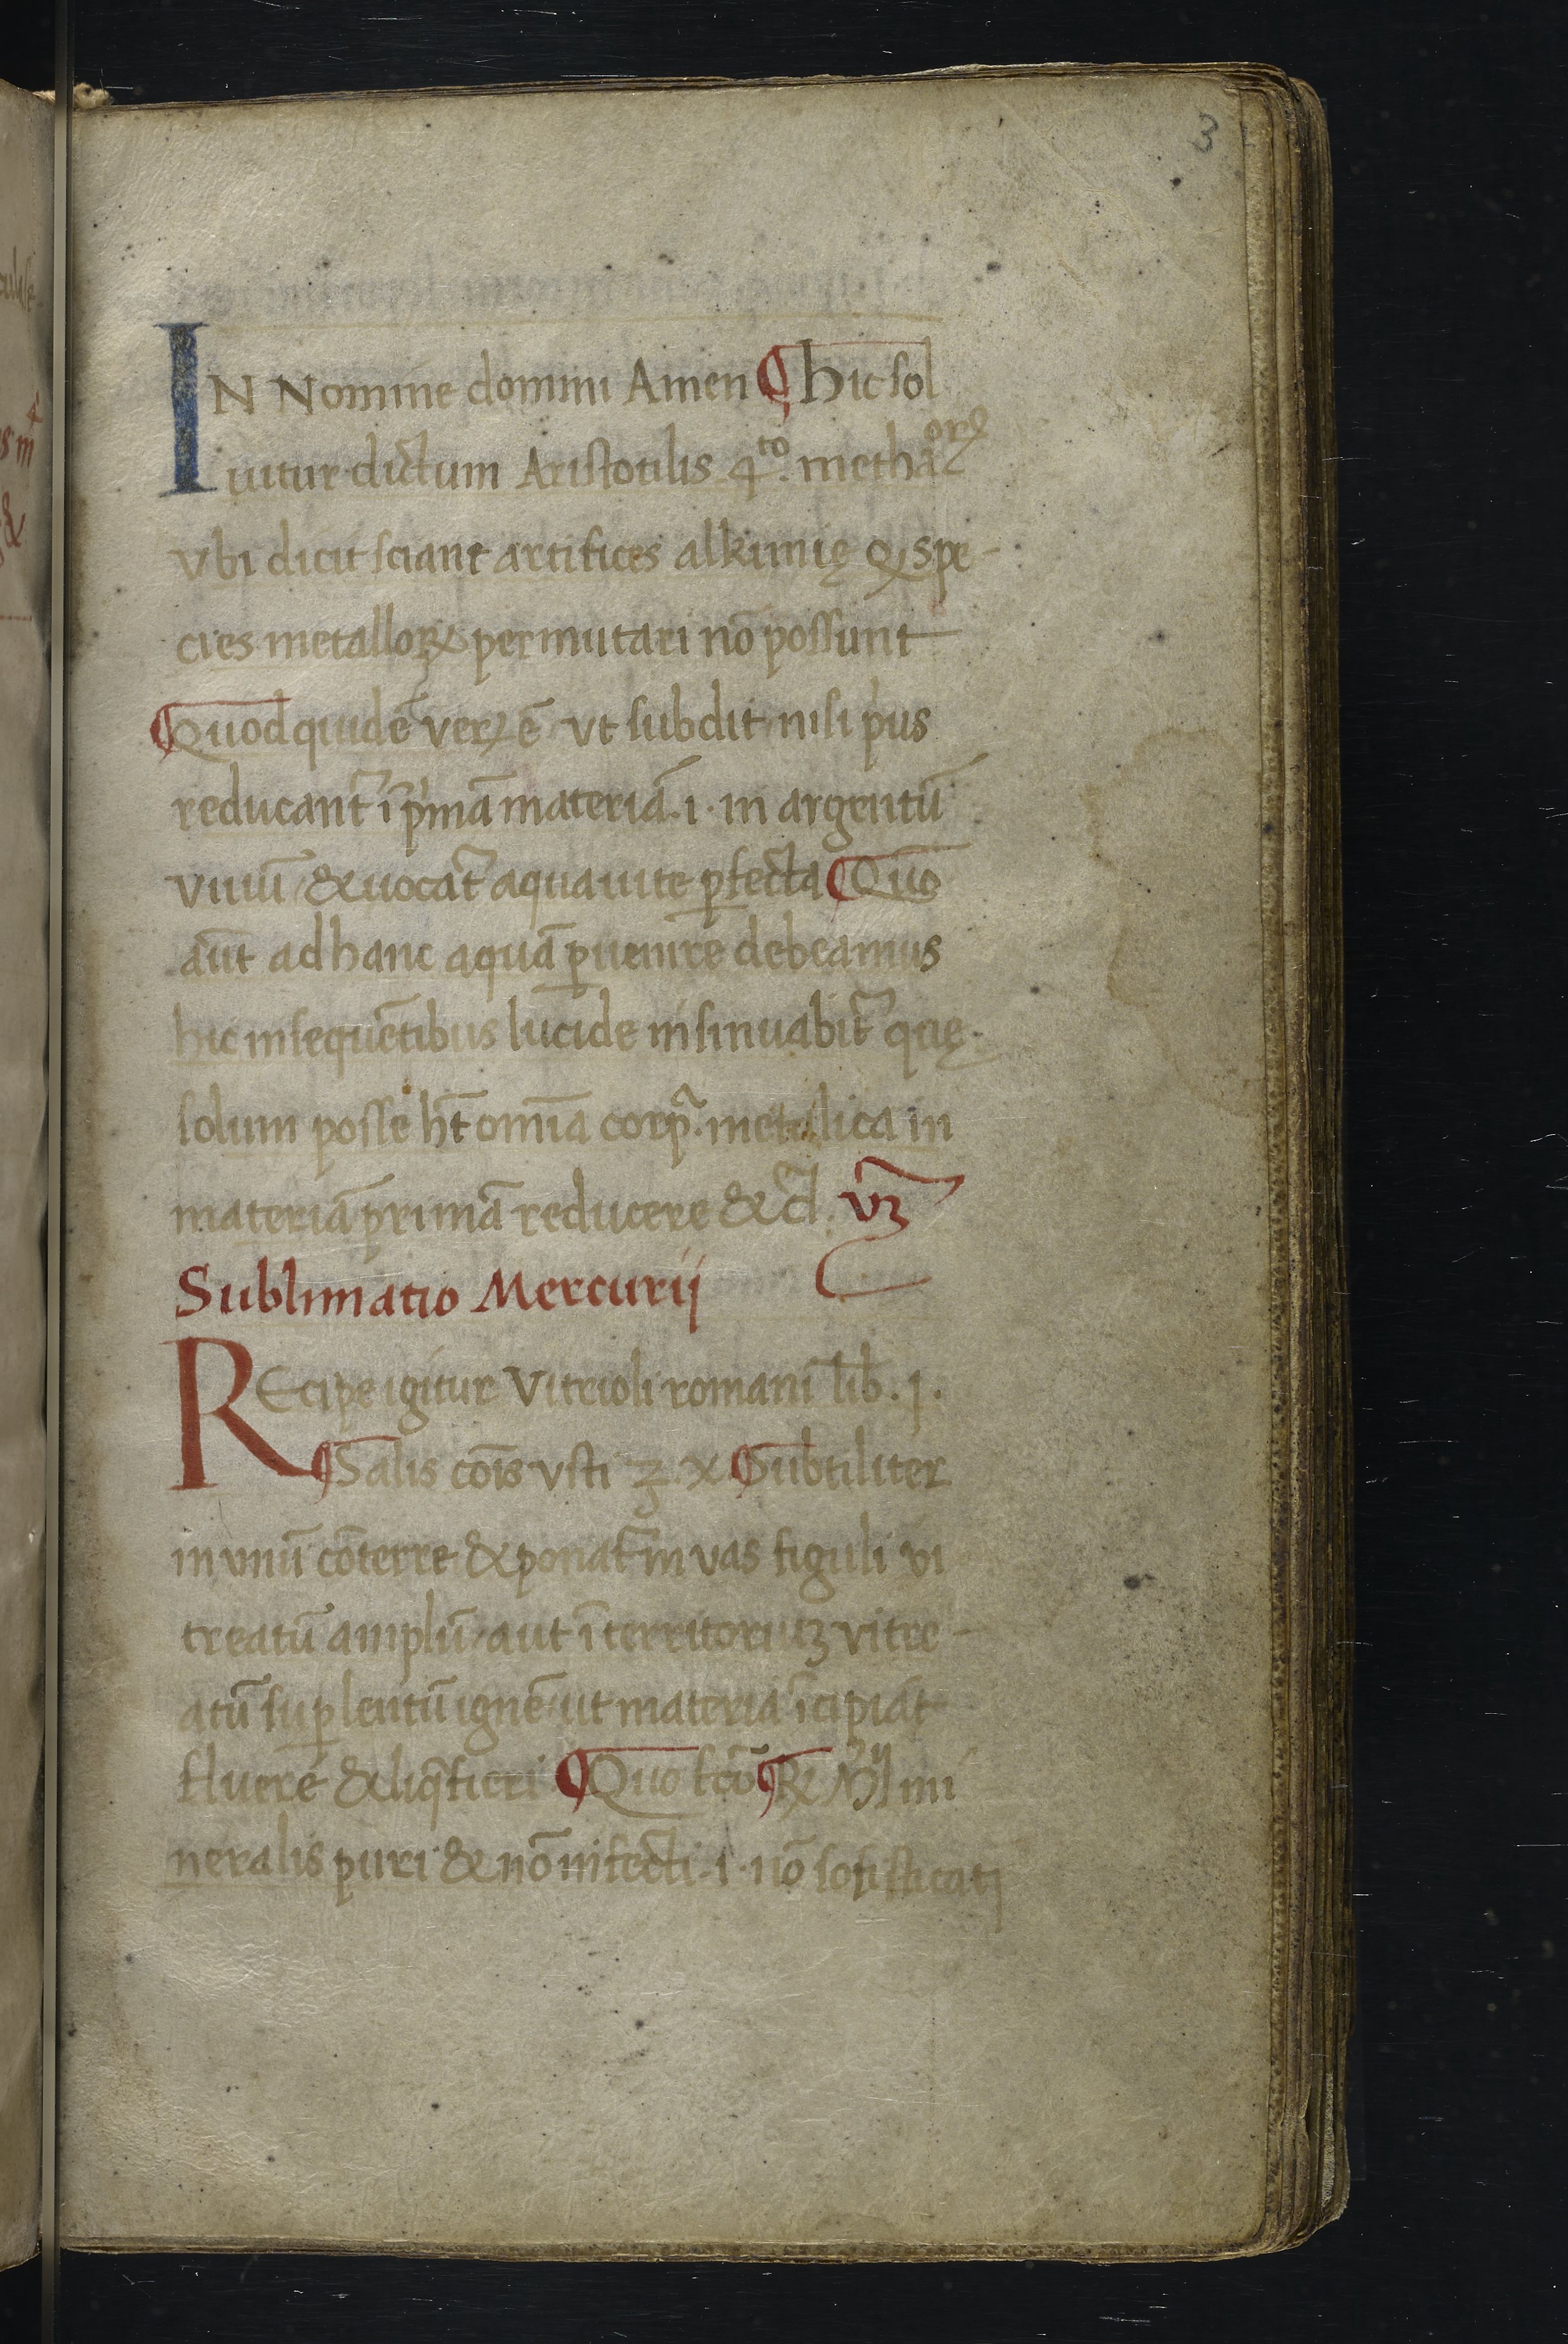 3
IN Nomine domini Amen ¶ hic sol
uitur dictum Aristotilis 4.to methaorꝝ
vbi dicit sciant artifices alkimię ꝙ spe-
cies metalloꝝ permutari nō possunt
¶ Quod quidē veꝝ ē vt subdit nisi pͥus
reducant᷑ ī pͥmā materiā .i. in argentū
viuū & uocat᷑ aqua uite ꝑfecta ¶ Quō
aūt ad hanc aquā ꝑuenire debeamus
hic in sequētibus lucide insinuabit᷑
solum posse hn̄t omīa corꝑa metalica in
materiā primā reducere &c̄ vꝫ
Sublimatio Mercurij
REcipe igitur Vitrioli romani lib. j.
¶ Salis cōis vsti ℥ x ¶ Subtiliter
in vnū cōterre & ponat᷑ in vas figuli vi
treatū amplū aut ī territoriuꝫ vitre-
atū suꝑ lentū ignē ut materia īcipiat
fluere & liq̄fieri ¶ Quo fcō ¶ ℞ mi
neralis puri & nō infecti .i. nō sofisticati